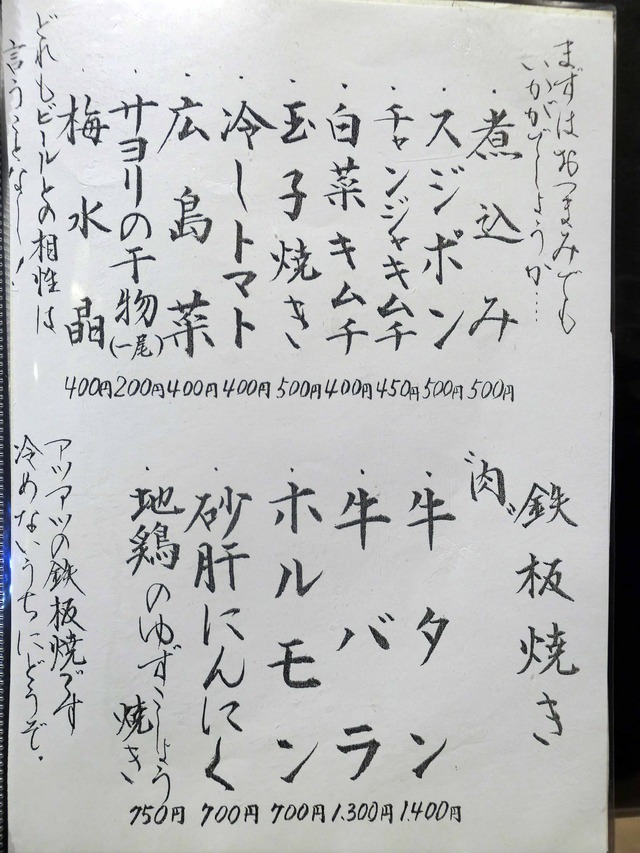 まずはおつまみでも
いかがでしょうか…
・煮込み 500円
・スジポン 500円
・チャンジャキムチ 450円
・白菜キムチ 400円
・玉子焼き 500円
・冷しトマト 400円
・広島菜 400円
・サヨリの干物(一尾) 200円
・梅水晶 400円
どれもビールとの相性は
言うことなし!
鉄板焼き
"肉"
・牛タン 1.400円
・牛バラ 1.300円
・ホルモン 700円
・砂肝にんにく 700円
・地鶏のゆずこしょう
焼き 750円
アツアツの鉄板焼です
冷めないうちにどうぞ。